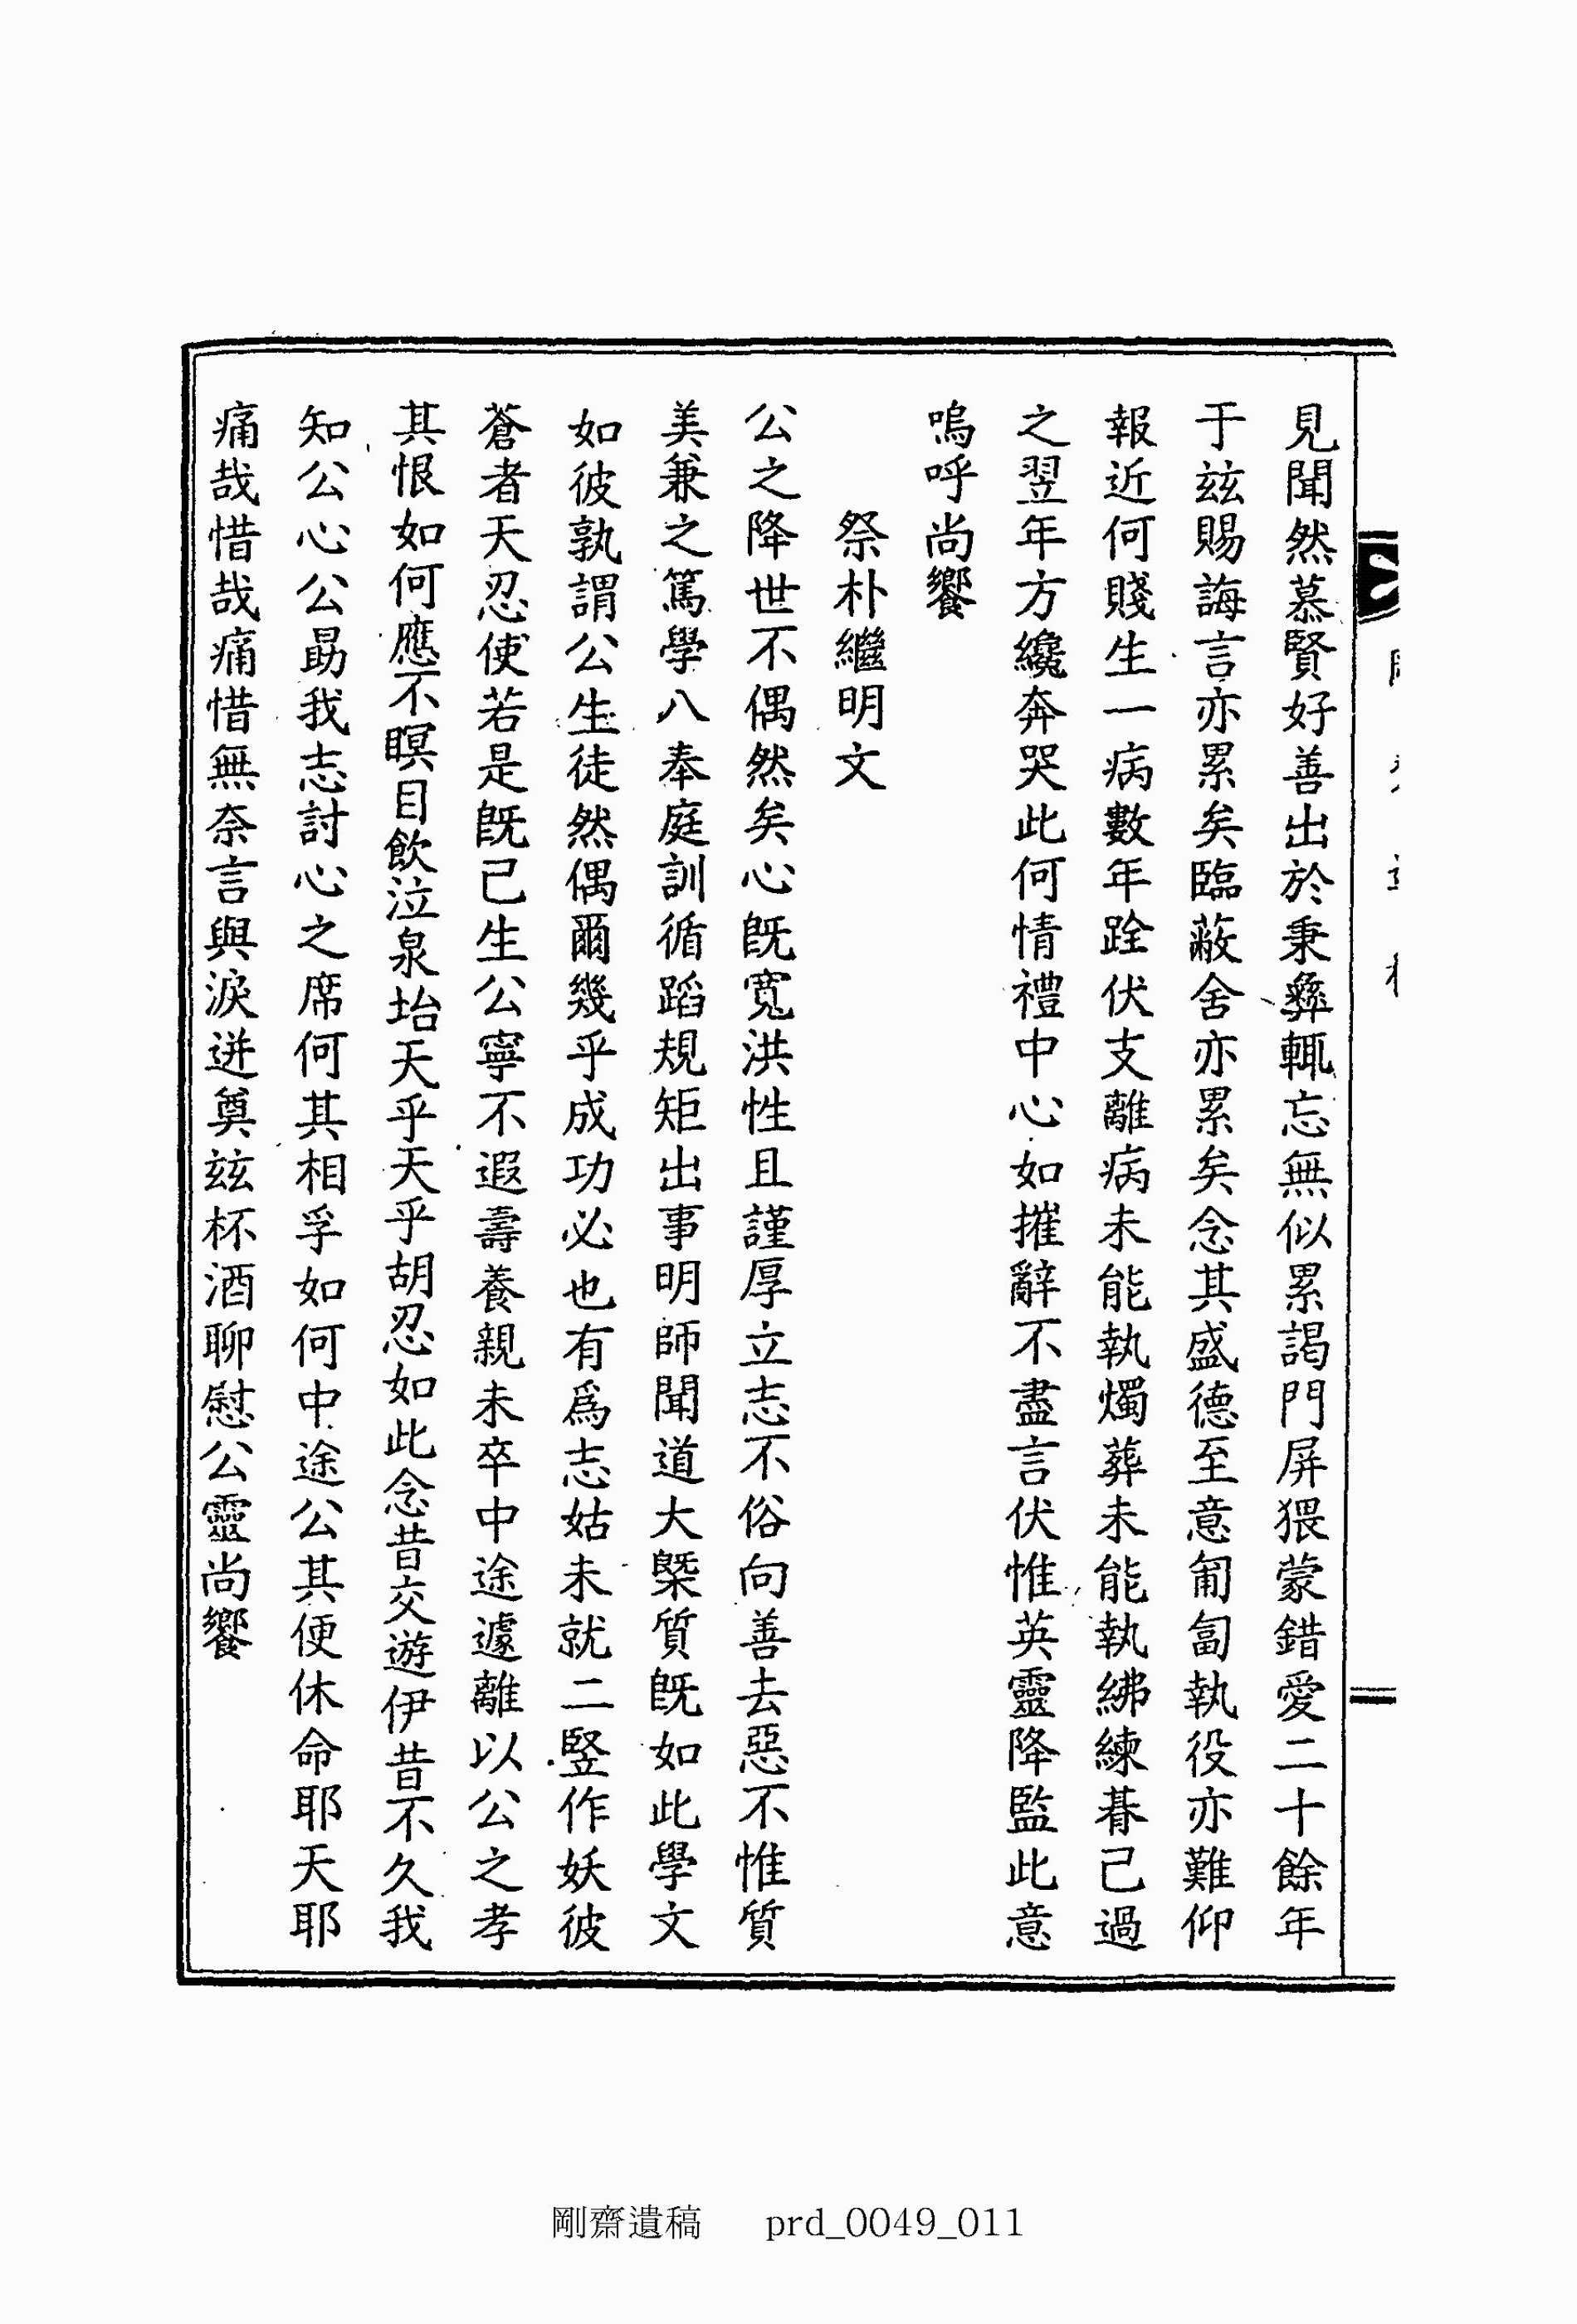 見聞然慕賢好善出於秉彝輒忘無似累謁門屏猥蒙錯愛二十餘年
于玆賜誨言亦累矣臨蔽舍亦累矣念其盛德至意匍匐執役亦難仰
報近何賤生一病數年跧伏支離病未能執燭葬未能執紼練朞已過
之翌年方纔奔哭此何情禮中心如摧辭不盡言伏惟英靈降監此意
嗚呼尚饗
祭朴繼明文
公之降世不偶然矣心既寬洪性且謹厚立志不俗向善去惡不惟質
美兼之篤學八奉庭訓循蹈規矩出事明師聞道大槩質既如此學文
如彼孰謂公生徒然偶爾幾乎成功必也有爲志姑未就二竪作妖彼
蒼者天忍使若是既已生公寧不遐壽養親未卒中途遽離以公之孝
其恨如何應不瞑目飮泣泉坮天乎天乎胡忍如此念昔交遊伊昔不久我
知公心公勗我志討心之席何其相孚如何中途公其便休命耶天耶
痛哉惜哉痛惜無奈言與淚迸奠玆杯酒聊慰公靈尚饗
剛齋遺稿 prd_0049_011